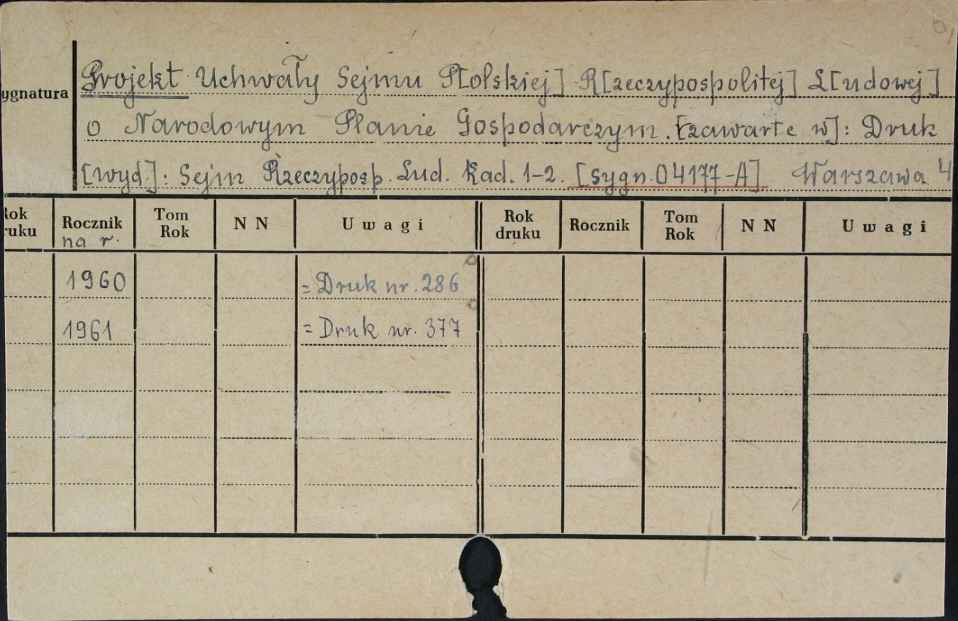 ygnatura
Projekt Uchwały Sejmu P[olskiej] R[zeczypospolitej] L[udowej]
o Narodowym Planie Gospodarczym. [zawarte w]: Druk
[wyd.]: Sejm Rzeczyposp. Lud. Kad. 1-2. [sygn. 04177-A] Warszawa 4
Rok druku Rocznik Tom Rok NN Uwagi Rok druku Rocznik Tom Rok NN Uwagi
na r.
1960 = Druk nr. 286
1961 = Druk nr. 377